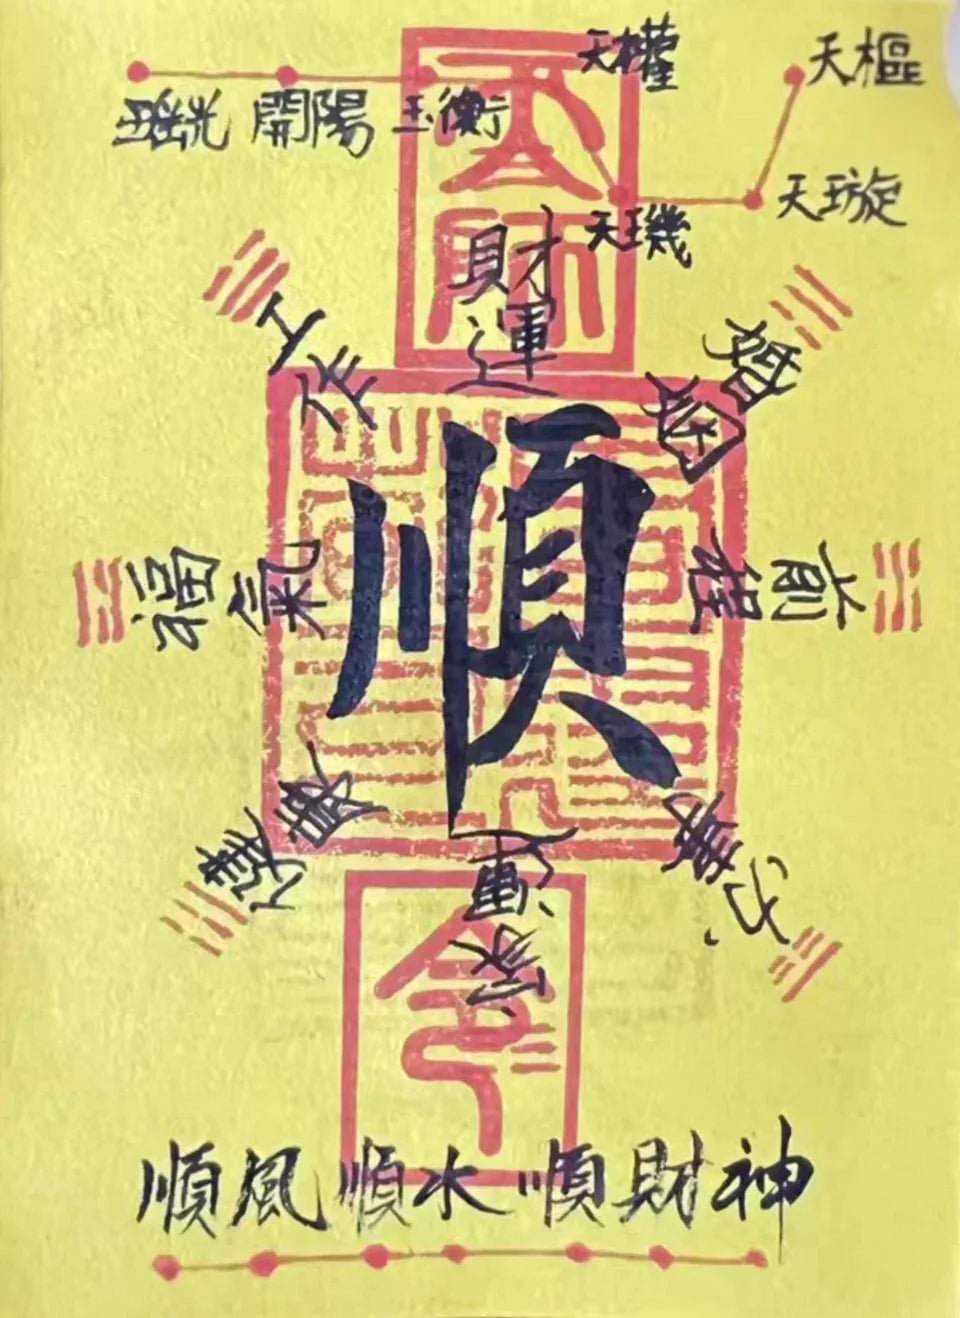 天權 天樞
瑤光 開陽 玉衡
天璇
天璣
財運
工作
婚姻
順
福氣
前程
健康
子嗣
家運
天師
令
順風順水順財神